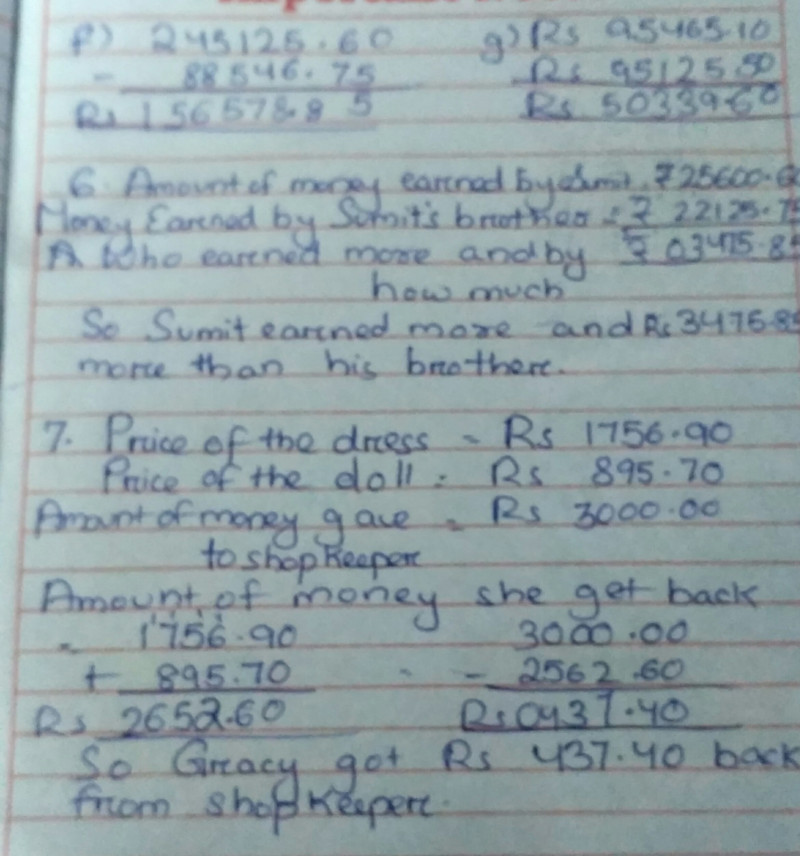 f) 245125.60
- 88546.75
Rs 156578.85
g) Rs 95465.10
Rs 95125.50
Rs 50339.60
6. Amount of money earened by Sumit, ₹25600.6
Money Earened by Sumit's brother = ₹ 22125.7
A Who earened more and by ₹ 03475.8
how much
So Sumit earened more and Rs 3475.8
more than his brothere.
7. Price of the dress = Rs 1756.90
Price of the doll = Rs 895.70
Amount of money gave = Rs 3000.00
to shopkeeper
Amount of money she get back
= 1756.90 3000.00
+ 895.70 - 2562.60
Rs 2652.60 Rs 0437.40
So Greacy got Rs 437.40 back
from shopkeeper.